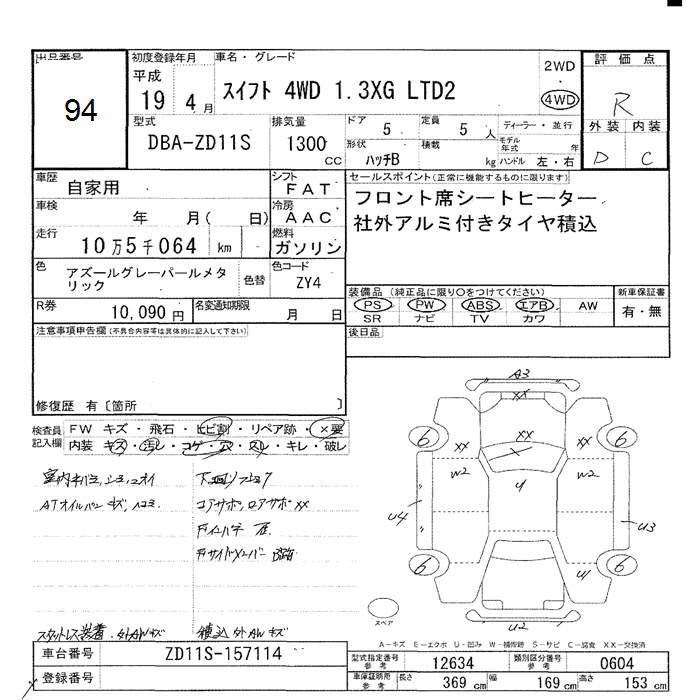 出品番号
94
初度登録年月
平成
19 4 月
車名・グレード
スイフト 4WD 1.3XG LTD2
2WD
・
4WD
評価点
R
型式
DBA-ZD11S
排気量
1300
CC
ドア
5
定員
5 人
ディーラー・並行
形状
ハッチB
積載
kg
モデル年式
年
ハンドル 左・右
外装 内装
D C
車歴
自家用
シフト
FAT
セールスポイント(正常に機能するものに限ります)
フロント席シートヒーター
社外アルミ付きタイヤ積込
車検
年 月( 日)
冷房
AAC
走行
10万5千064 km
燃料
ガソリン
色
アズールグレーパールメタリック
色替
色コード
ZY4
装備品(純正品に限り○をつけてください)
PS PW ABS エアB AW
SR ナビ TV カワ
新車保証書
有・無
R券
10,090 円
名変通知期限
月 日
後日品
注意事項申告欄(不具合内容等は具体的に記入して下さい)
修復歴 有〔箇所 〕
検査員記入欄
FW キズ・飛石・ヒビ割・リペア跡・×要
内装 キズ・汚レ・コゲ・穴・スレ・キレ・破レ
A3
XX
6 XX XX XX 6
W2 U W2
U4 U3
6 U 6
U2
スペア
A-キズ E-エクボ U-凹み W-補修跡 S-サビ C-腐食 XX-交換済
車台番号
ZD11S-157114
登録番号
型式指定番号
参考
12634
類別区分番号
参考
0604
車庫証明所
参考
長さ
369 cm
幅
169 cm
高さ
153 cm